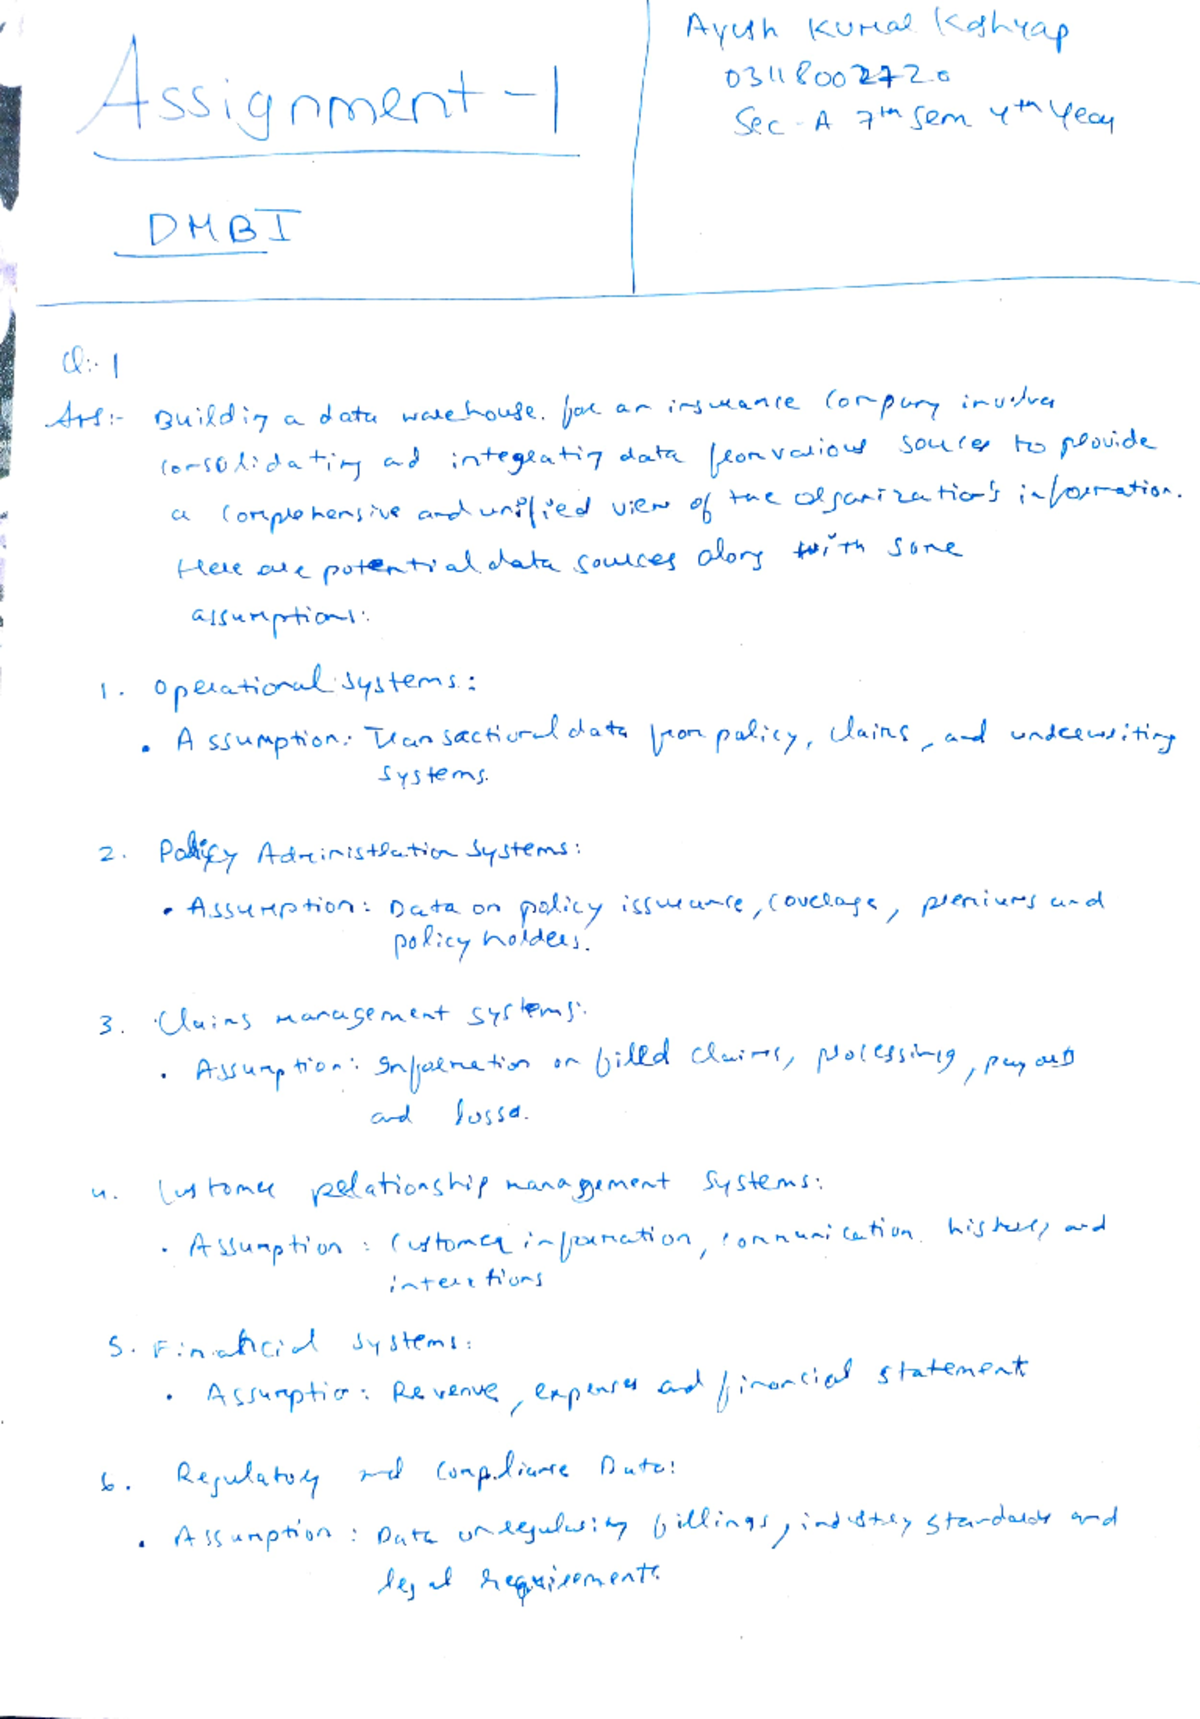 Assignment-1
DMBI
Ayush Kumar Kashyap
03118002720
Sec-A 7th sem 4th Year
Q:-1
Ans:- Building a data warehouse. for an insurance company involves
consolidating and integrating data from various sources to provide
a comprehensive and unified view of the organization's information.
Here are potential data sources along with some
assumptions:
1. Operational Systems:
• Assumption: Transactional data from policy, claims, and underwriting
systems.
2. Policy Administration Systems:
• Assumption: Data on policy issuance, coverage, premiums and
policy holders.
3. Claims management systems:
• Assumption: Information on filled claims, processing, payouts
and losses.
4. Customer relationship management systems:
• Assumption: Customer information, communication history and
interactions
5. Financial systems:
• Assumption: Revenue, expenses and financial statements
6. Regulatory and Compliance Data:
• Assumption: Data on regularity fillings, industry standards and
legal requirements.